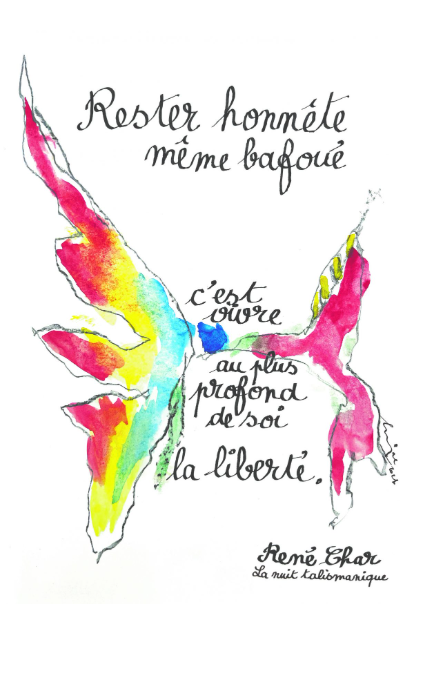 Rester honnête
même bafoué
c'est
vivre
au plus
profond
de soi
la liberté.
René Char
La nuit talismanique